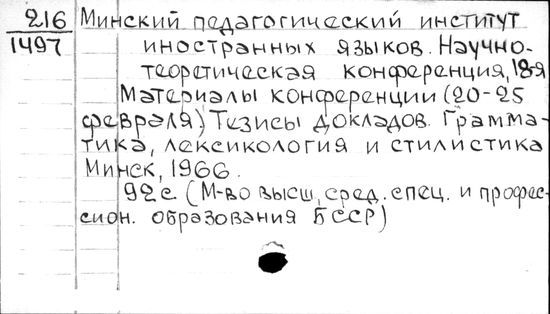 216 Минский педагогический институт
1497 иностранных языков. Научно-
теоретическая конференция, 18-я
Материалы конференции (20-25
февраля) Тезисы докладов. Грамма-
тика, лексикология и стилистика
Минск, 1966.
92 с. (М-во высш, сред. спец. и профес-
сион. образования БССР)